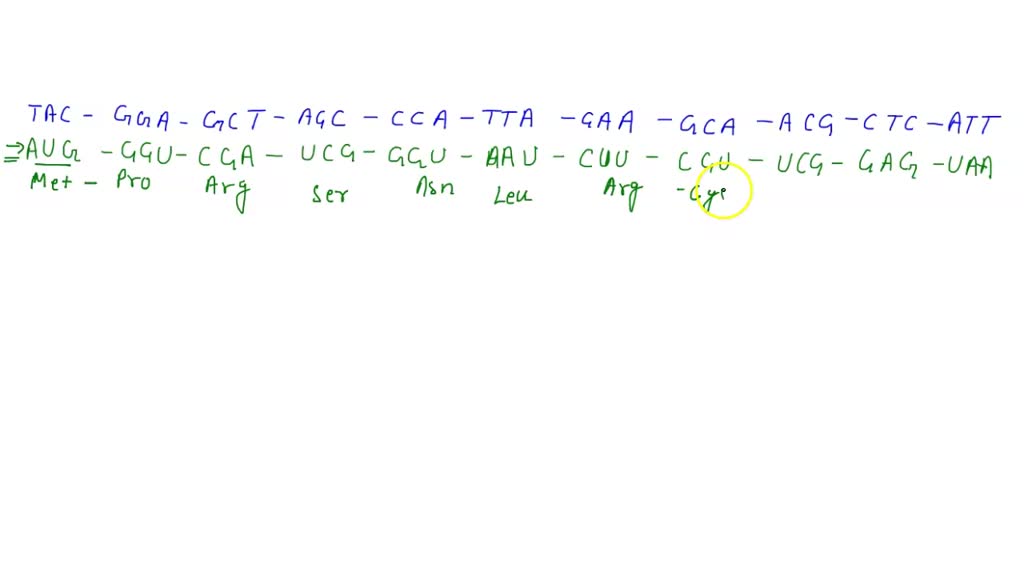 TAC - GGA - GCT - AGC - CCA - TTA - GAA - GCA - ACG - CTC - ATT
⇒ AUG - GGU - CGA - UCG - GGU - AAU - CUU - CGU - UCG - GAG - UAA
Met - Pro Arg Ser Asn Leu Arg - Cys